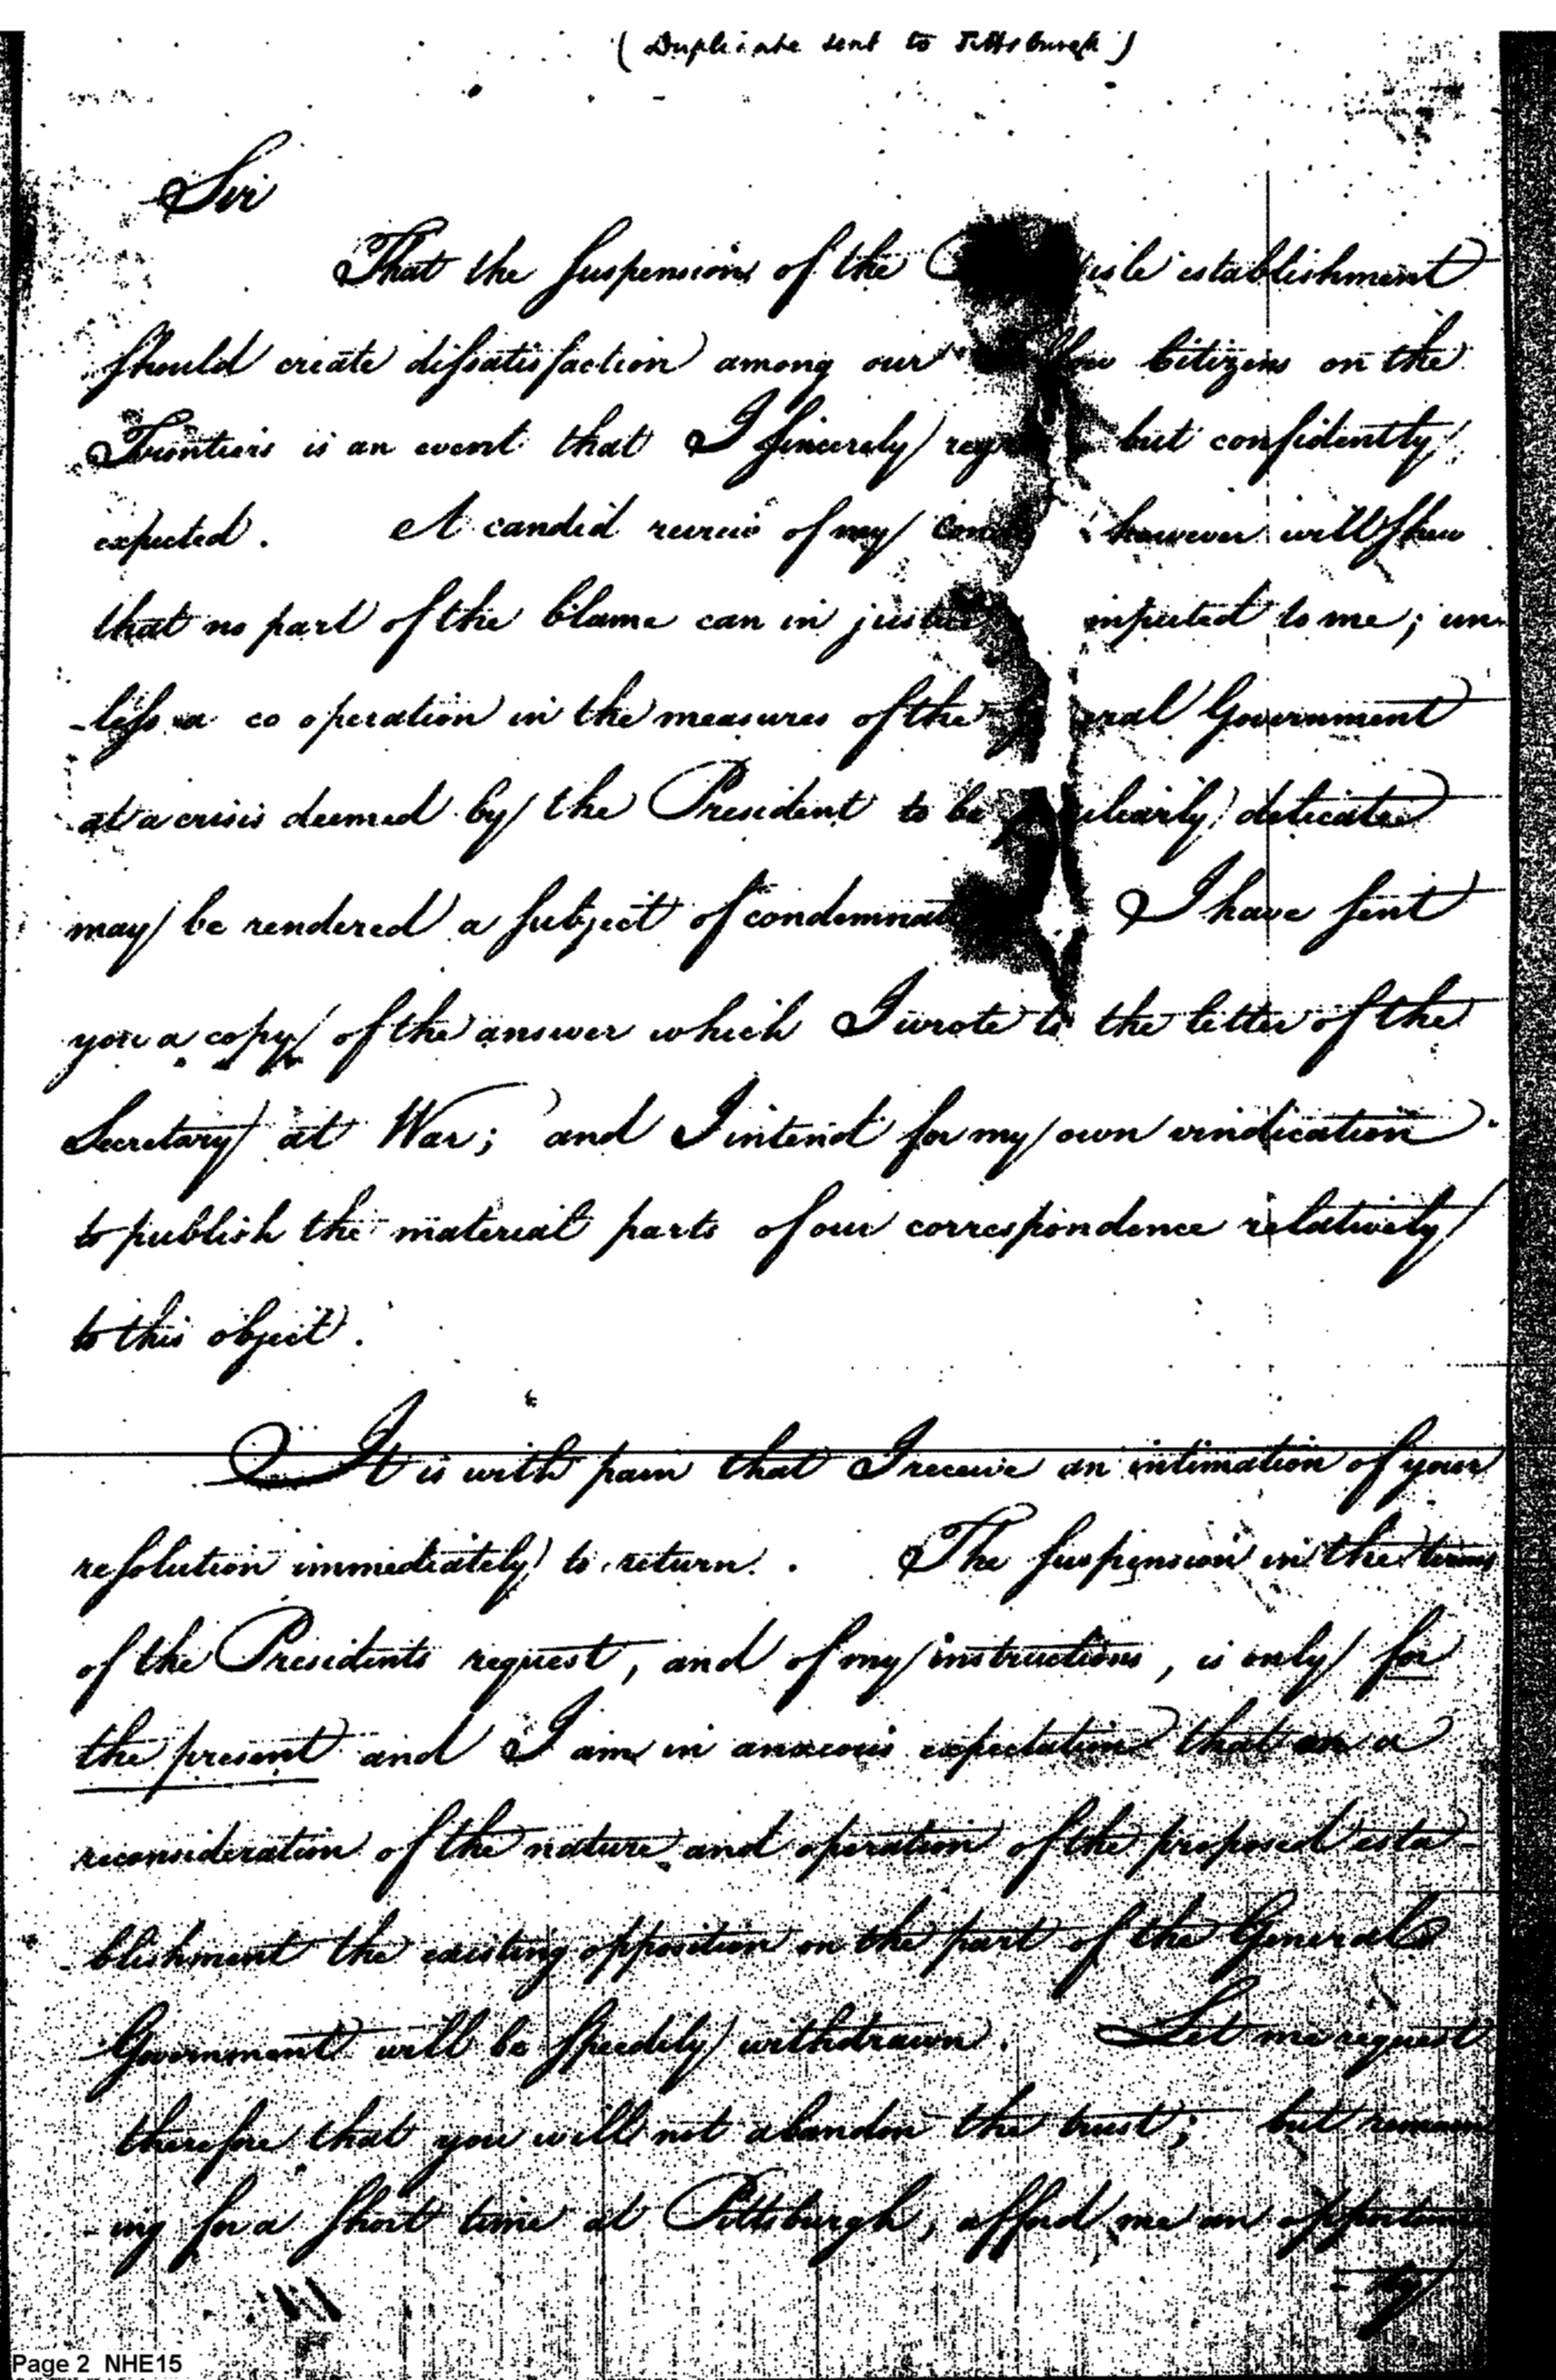 (Duplicate sent to Pittsburgh)
Sir
That the Suspension of the establishment
should create dissatisfaction among our Citizens on the
Frontiers is an event that I sincerely but confidently
expected. A candid review of my however will shew
that no part of the blame can in justice imputed to me; un-
-less a co operation in the measures of the Government
at a crisis deemed by the President to be delicate
may be rendered a subject of I have sent
you a copy of the answer which I wrote to the letter of the
Secretary at War; and I intend for my own vindication
to publish the material parts of our correspondence relatively
to this object.
It is with pain that I receive an intimation of your
resolution immediately to return. The suspension in the terms
of the Presidents request, and of my instructions, is only for
the present and I am in anxious expectation that on a
reconsideration of the nature and operation of the proposed esta-
blishment the existing opposition on the part of the General
Government will be speedily withdrawn. Let me request
therefore that you will not abandon the trust; but remain
-ing for a short time at Pittsburgh, afford me an opportuni
ty
Page 2 NHE15